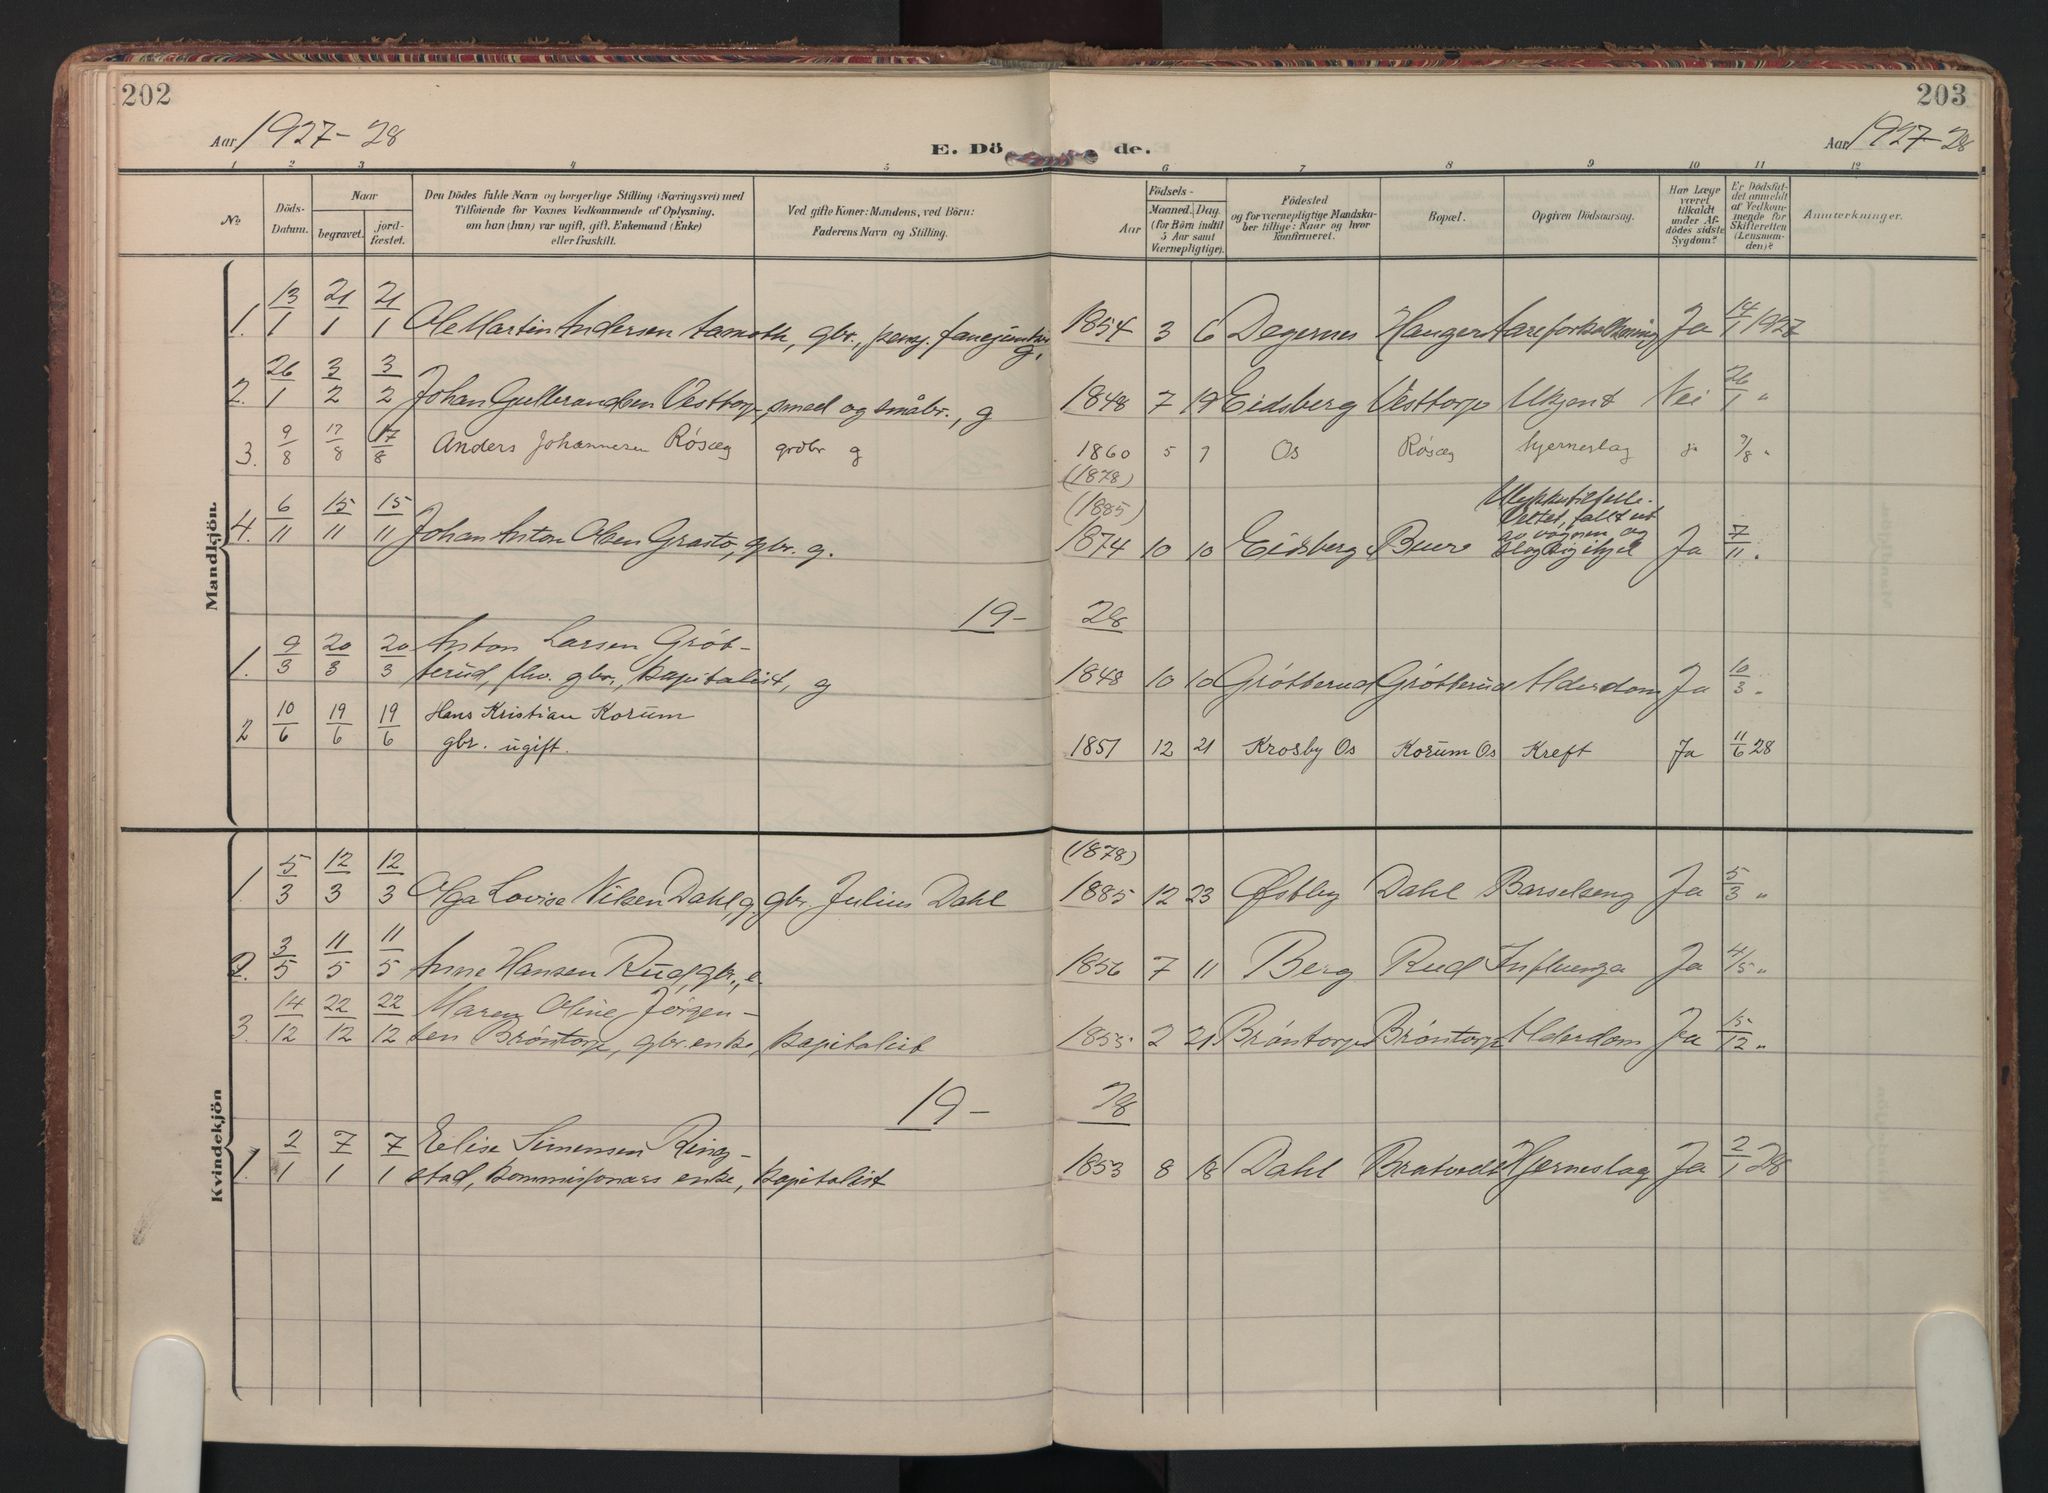 202
203
Aar 1927-28
E. Dö de.
Aar 1927-28
1 2 3 4 5 6 7 8 9 10 11 12
No.
Döds-Datum.
Naar
begravet.
jord-fæstet.
Den Dödes fulde Navn og borgerlige Stilling (Næringsvei) med
Tilföiende for Voxnes Vedkommende af Oplysning,
om han (hun) var ugift, gift, Enkemand (Enke)
eller fraskilt.
Ved gifte Koner: Mandens, ved Börn:
Faderens Navn og Stilling.
Födsels-
Aar
Maaned. Dag.
(for Börn indtil
5 Aar samt
Værnepligtige).
Födested
og for værnepligtige Mandska-
ber tillige: Naar og hvor
konfirmeret.
Bopæl.
Opgiven Dödsaarsag.
Har Læge
været
tilkaldt
under Af-
dödes sidste
Sygdom?
Er Dödsfal-
det anmeldt
af Vedkom-
mende for
Skifteretten
(Lensman-
den)?
Anmærkninger.
Mandkjön.
1. 13/1 21/1 21/1 Ole Martin Andersen Aamoth, gbr., pens. fanejunker g. 1854 3 6 Degernes Hauger Aareforkalkning Ja 14/1 1927
2. 26/1 3/2 3/2 Johan Gulbrandsen Vesttorp, smed og småbr., g 1848 7 19 Eidsberg Vesttorp Ukjent Nei 26/1 "
3. 9/8 17/8 17/8 Anders Johannesen Rösæg grdbr g 1860 5 7 Os Rösæg hjerneslag ja 9/8 "
(1878)
(1885)
4. 6/11 15/11 15/11 Johan Anton Olsen Grasto, gbr. g. 1874 10 10 Eidsberg Buer Ulykkestilfelle. Veltet, fallt ut av vognen og slog sig ihjel Ja 7/11 "
19- 28
1. 9/3 20/3 20/3 Anton Larsen Gröt-
terud, fhv. gbr., kapitalist, g 1848 10 10 Grötterud Grötterud Alderdom Ja 10/3 "
2 10/6 19/6 19/6 Hans Kristian Korum
gbr. ugift. 1851 12 21 Krosby Os Korum Os Kreft Ja 11/6 28
Kvindekjön
(1878)
1. 5/3 12/3 12/3 Olga Lovise Nilsen Dahl, g. gbr. Julius Dahl 1885 12 23 Østby Dahl Barselseng Ja 5/3 "
2. 3/5 11/5 11/5 Anne Hansen Rud, gbr., e. 1856 7 11 Berg Rud Influenza Ja 4/5 "
3. 14/12 22/12 22/12 Maren Oline Jörgen-
sen Bröntorp, gbr. enke, kapitalist 1853 2 21 Bröntorp Bröntorp Alderdom Ja 15/12 "
19- 28
1. 2/1 7/1 7/1 Elise Simensen Ring-
stad, kommisjonærs enke, kapitalist 1853 8 18 Dahl Hjerneslag Ja 2/1 28